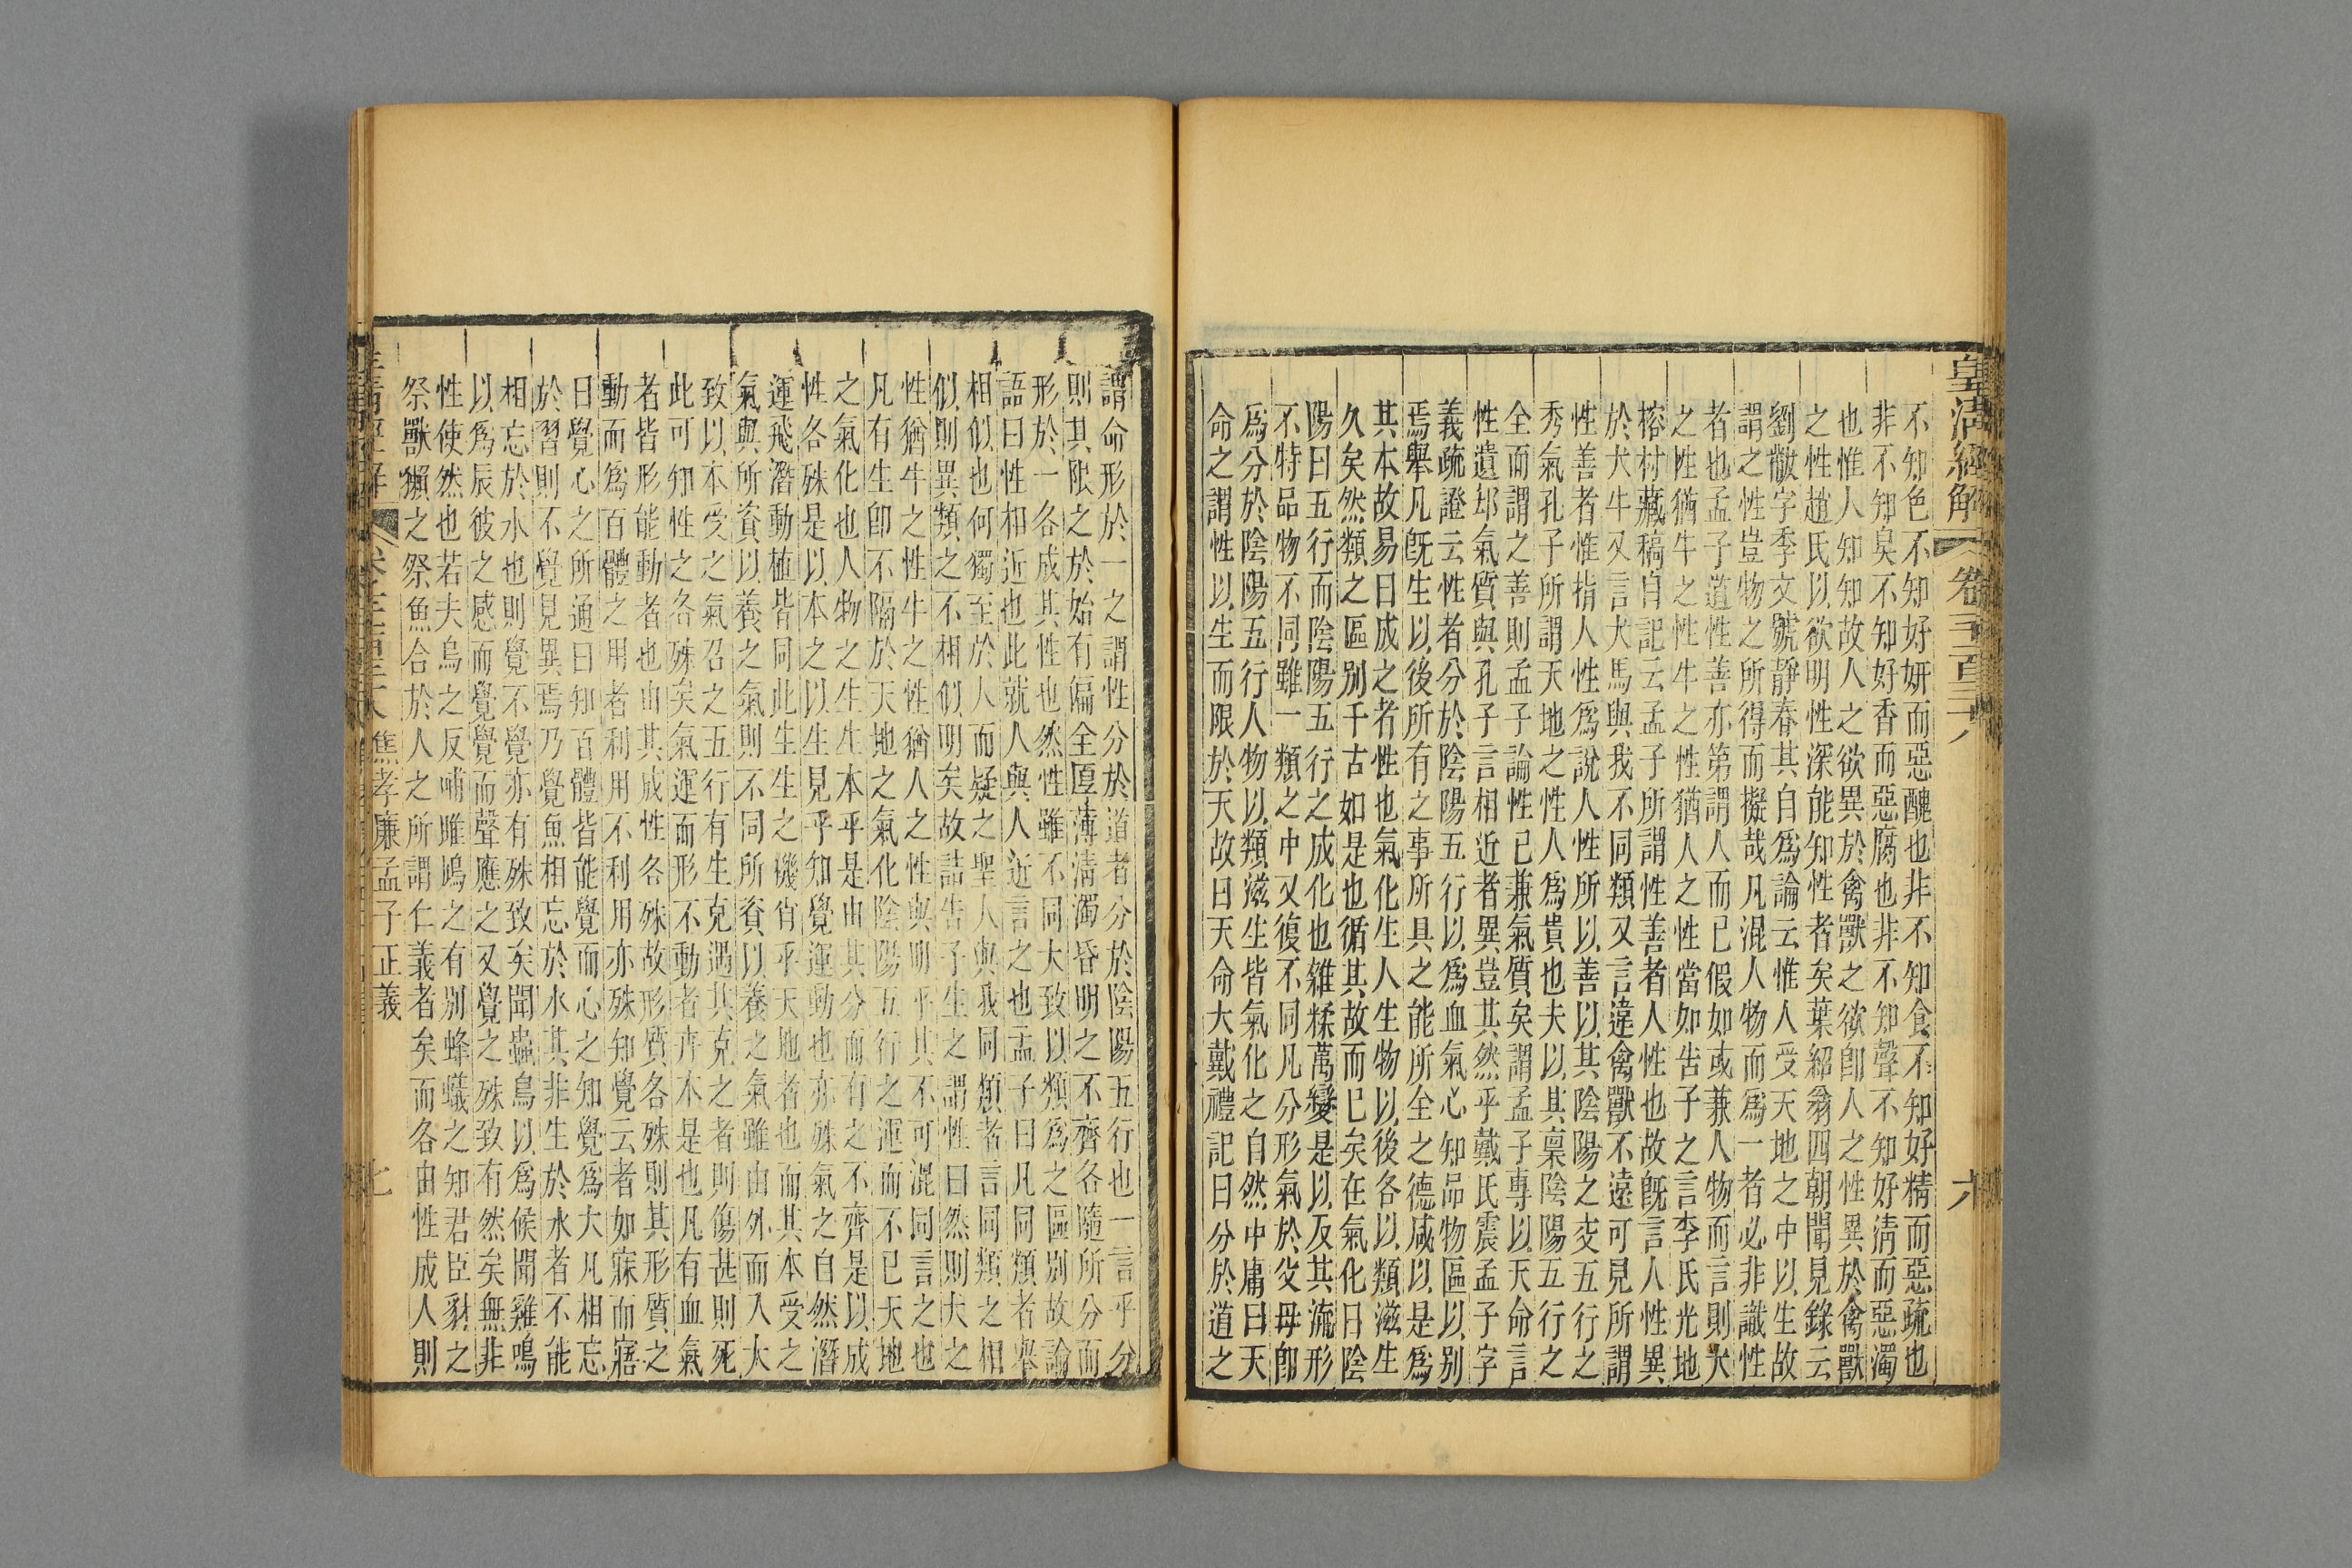 皇清經解
卷一千一百三十八
六
不知色不知好妍而惡醜也非不知食不知好精而惡疏也
非不知臭不知好香而惡腐也非不知聲不知好清而惡濁
也惟人知知故人之欲異於禽獸之欲卽人之性異於禽獸
之性趙氏以欲明性深能知性者矣葉紹翁四朝聞見錄云
劉黻字季文號靜春其自為論云惟人受天地之中以生故
謂之性豈物之所得而擬哉凡混人物而為一者必非識性
者也孟子道性善亦第謂人而已假如或兼人物而言則犬
之性猶牛之性牛之性猶人之性當如告子之言李氏光地
榕村藏稿自記云孟子所謂性善者人性也故旣言人性異
於犬牛又言犬馬與我不同類又言違禽獸不遠可見所謂
性善者惟指人性為說人性所以善以其陰陽之交五行之
秀氣孔子所謂天地之性人為貴也夫以其稟陰陽五行之
全而謂之善則孟子論性已兼氣質矣謂孟子專以天命言
性遺卻氣質與孔子言相近者異豈其然乎戴氏震孟子字
義疏證云性者分於陰陽五行以為血氣心知品物區以別
焉舉凡旣生以後所有之事所具之能所全之德咸以是為
其本故易曰成之者性也氣化生人生物以後各以類滋生
久矣然類之區別千古如是也循其故而已矣在氣化曰陰
陽曰五行而陰陽五行之成化也雜糅萬變是以及其流形
不特品物不同雖一類之中又復不同凡分形氣於父母卽
為分於陰陽五行人物以類滋生皆氣化之自然中庸曰天
命之謂性以生而限於天故曰天命大戴禮記曰分於道之
謂命形於一之謂性分於道者分於陰陽五行也一言乎分
則其限之於始有偏全厚薄清濁昏明之不齊各隨所分而
形於一各成其性也然性雖不同大致以類為之區別故論
語曰性相近也此就人與人近言之也孟子曰凡同類者舉
相似也何獨至於人而疑之聖人與我同類者言同類之相
似則異類之不相似明矣故詰告子生之謂性曰然則犬之
性猶牛之性牛之性猶人之性與明乎其不可混同言之也
凡有生卽不隔於天地之氣化陰陽五行之運而不已天地
之氣化也人物之生生本乎是由其分而有之不齊是以成
性各殊是以本之以生見乎知覺運動也亦殊氣之自然潛
運飛潛動植皆同此生生之機肖乎天地者也而其本受之
氣與所資以養之氣則不同所資以養之氣雖由外而入大
致以本受之氣召之五行有生克遇其克之者則傷甚則死
此可知性之各殊矣氣運而形不動者卉木是也凡有血氣
者皆形能動者也由其成性各殊故形質各殊則其形質之
動而為百體之用者利用不利用亦殊知覺云者如寐而寤
曰覺心之所通曰知百體皆能覺而心之知覺為大凡相忘
於習則不覺見異焉乃覺魚相忘於水其非生於水者不能
相忘於水也則覺不覺亦有殊致矣聞蟲鳥以為候聞雞鳴
以為辰彼之感而覺覺而聲應之又覺之殊致有然矣無非
性使然也若夫烏之反哺雎鳩之有別蜂蟻之知君臣豺之
祭獸獺之祭魚合於人之所謂仁義者矣而各由性成人則
焦孝廉孟子正義
七